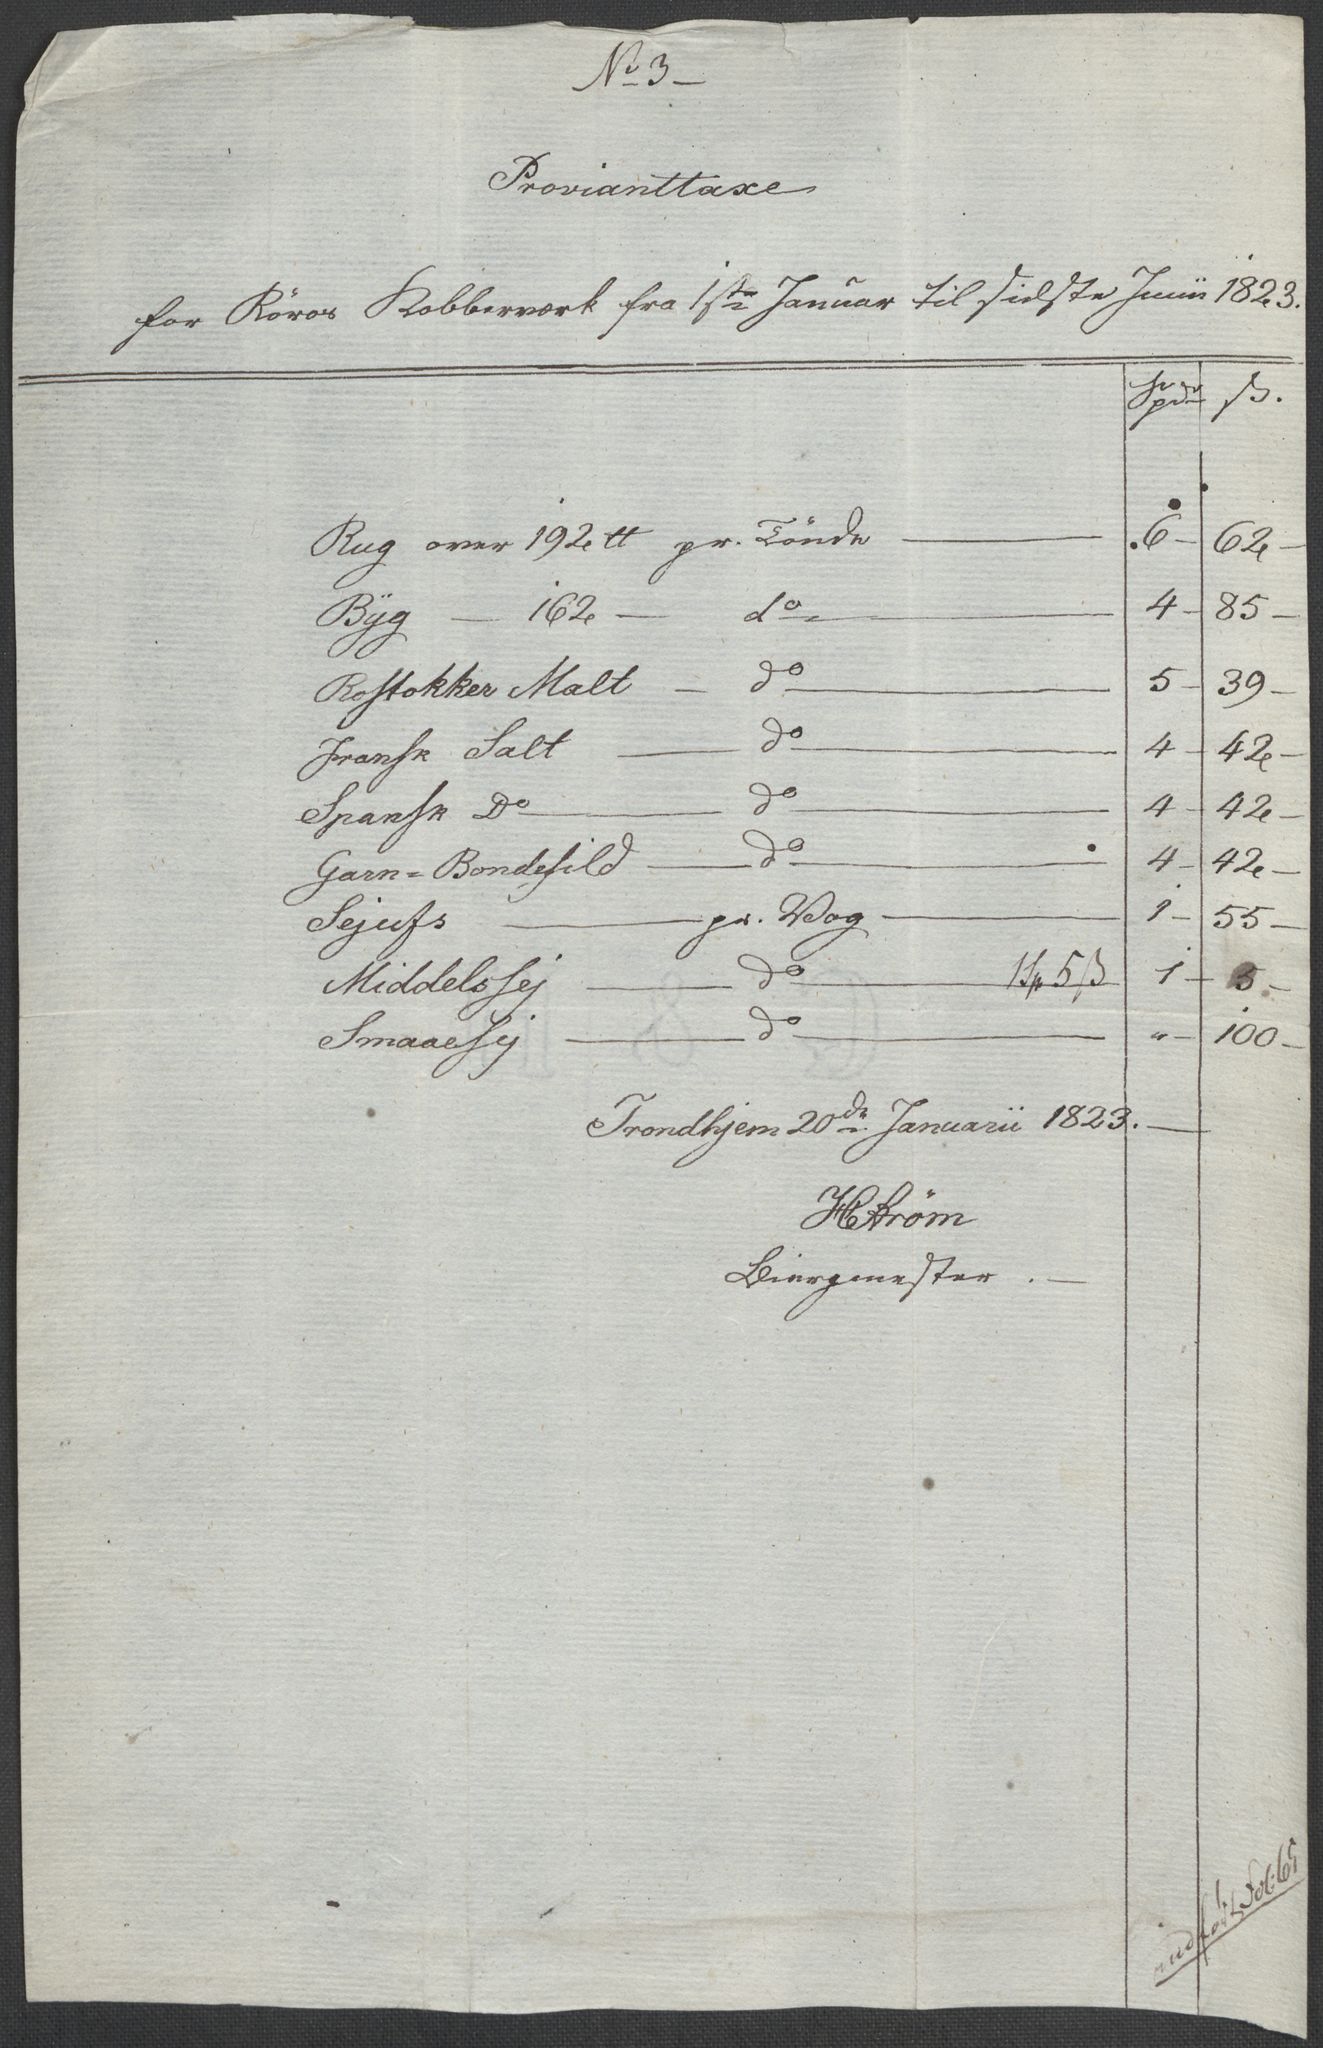 No 3 –
Provianttaxe
for Röros Kobberværk fra 1ste Januar til sidste Junii 1823.
Spdr ß.
Rug over 192 ℔ pr. Tönde — 6 – 62 –
Bÿg — 162 — do — 4 – 85 –
Rostokker Malt — do — 5 – 39 –
Fransk Salt — do — 4 – 42 –
Spansk Do — do — 4 – 42 –
Garn = Bondesild — do — 4 – 42 –
Sejufs — pr. Vog — 1 – 55 –
Middelssej — do — 1 Sp 5 ß 1 – 5 –
Smaaesej — do — " – 100 –
Trondhjem 20de Januarii 1823. —
HStröm
Biergmester . —
indført Fol: 61